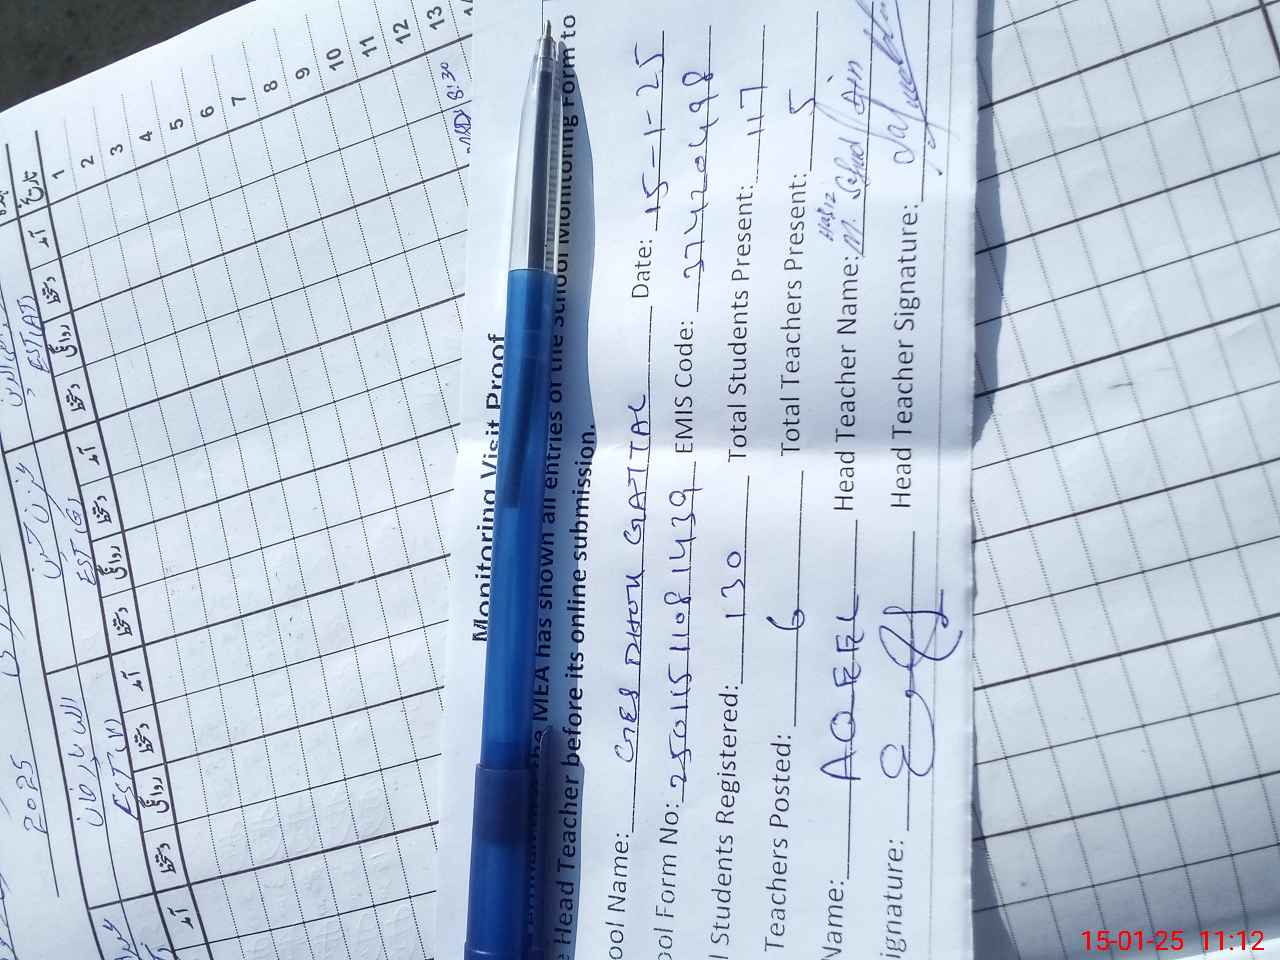 Monitoring Visit Proof
MEA has shown all entries of the School Monitoring Form to
Head Teacher before its online submission.
ool Name: GES DHOK GATTAL Date: 15-1-25
ool Form No: 25011511081439 EMIS Code: 37420498
l Students Registered: 130 Total Students Present: 117
Teachers Posted: 6 Total Teachers Present: 5
Name: AQEEL Head Teacher Name: Hafiz M.
ignature: Head Teacher Signature:
2025
EST (AT)
EST (G)
EST (V)
تاریخ آمد دستخط روانگی دستخط آمد دستخط روانگی دستخط آمد دستخط روانگی دستخط آمد
1
2
3
4
5
6
7
8
9
10
11
12
13
8:30
15-01-25 11:12